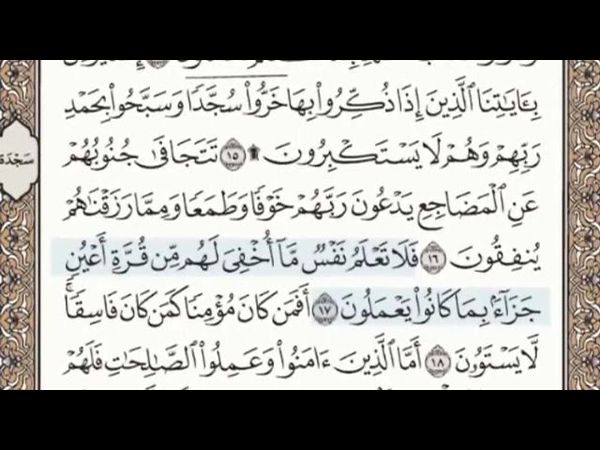 بِـَٔايَٰتِنَا ٱلَّذِينَ إِذَا ذُكِّرُوا۟ بِهَا خَرُّوا۟ سُجَّدًا وَسَبَّحُوا۟ بِحَمْدِ
رَبِّهِمْ وَهُمْ لَا يَسْتَكْبِرُونَ ۩ ١٥ تَتَجَافَىٰ جُنُوبُهُمْ
عَنِ ٱلْمَضَاجِعِ يَدْعُونَ رَبَّهُمْ خَوْفًا وَطَمَعًا وَمِمَّا رَزَقْنَٰهُمْ
يُنفِقُونَ ١٦ فَلَا تَعْلَمُ نَفْسٌ مَّآ أُخْفِىَ لَهُم مِّن قُرَّةِ أَعْيُنٍ
جَزَآءًۢ بِمَا كَانُوا۟ يَعْمَلُونَ ١٧ أَفَمَن كَانَ مُؤْمِنًا كَمَن كَانَ فَاسِقًا ۚ
لَّا يَسْتَوُۥنَ ١٨ أَمَّا ٱلَّذِينَ ءَامَنُوا۟ وَعَمِلُوا۟ ٱلصَّٰلِحَٰتِ فَلَهُمْ
سَجْدَة